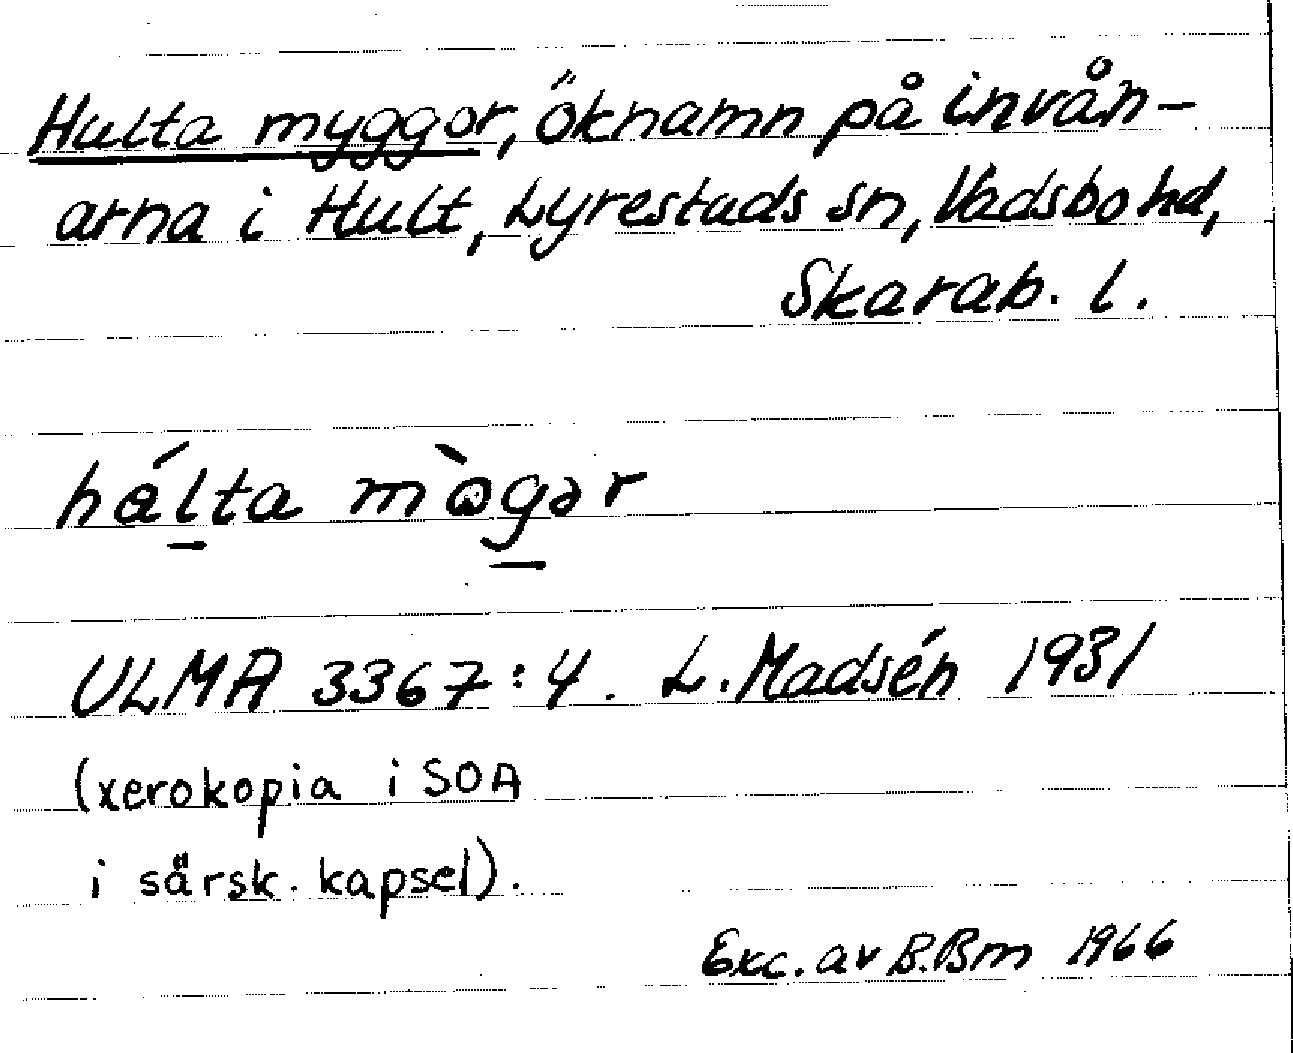 Hulta myggor, öknamn på invån-
arna i Hult, Lyrestads sn, Vadsbo hd,
Skarab. l.
hálta mògər
ULMA 3367:4. L. Madsén 1931
(xerokopia i SOA
i särsk. kapsel).
Exc. av B.Bm 1966